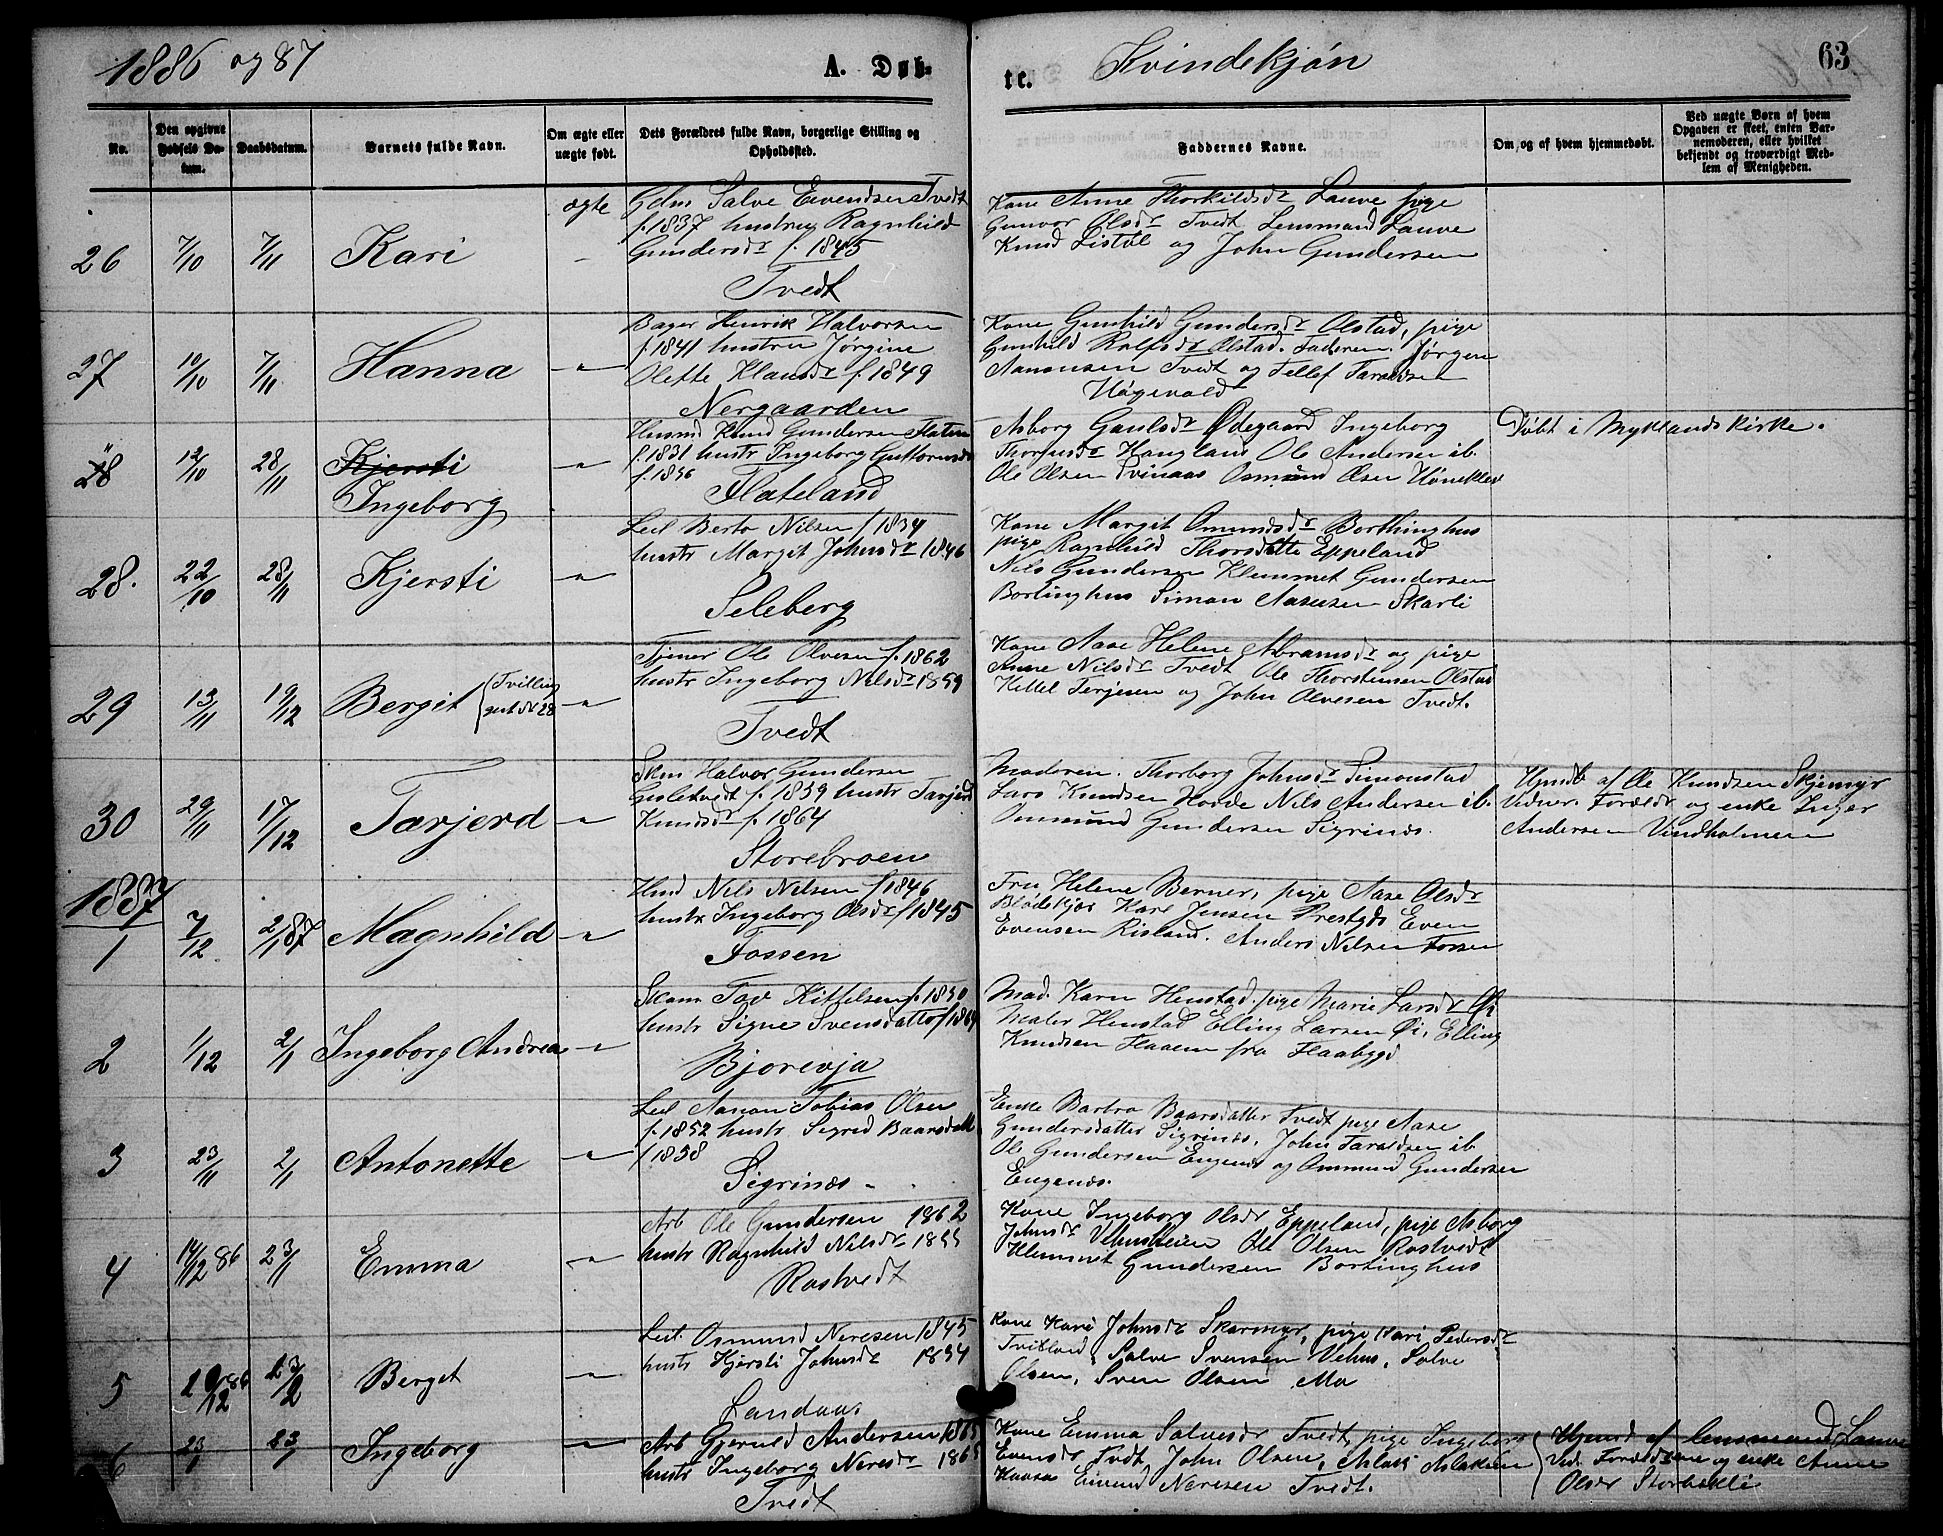 1886 og 87
A. Døb-
te.
Kvindekjøn
63
No.
Den opgivne Fødsels Da-
tum.
Daabsdatum.
Barnets fulde Navn.
Om ægte eller
uægte født.
Dets Forældres fulde Navn, borgerlige Stilling og
Opholdssted.
Faddernes Navne.
Om og af hvem hjemmedøbt.
Ved uægte Børn af hvem
Opgaven er skeet, enten Bar-
nemoderen, eller hvilket
bekjendt og troværdigt Med-
lem af Menigheden.
26 7/10 7/11 Kari ægte
Gdm Salve Eivendsen Tvedt
f. 1837 hustru Ragnhild
Gundersdr f. 1845
Tvedt
Kone Anne Thorkildsdr Lauve pige
Gunvor Olsdr Tvedt Lensmand Lauve
Knud Listøl og John Gundersen
27 10/10 7/11 Hanna
Bager Henrik Halvorsen
f. 1841 hustru Jørgine
Olette Klausdr f. 1849
Nergaarden
Kone Gunhild Gundersdr Olstad, pige
Gunhild Rolfsdr Olstad. Faderen. Jørgen
Aanonsen Tvedt og Tellef Taraldsen
Uogevold
28 12/10 28/11 Kjersti
Ingeborg
Husmd Knud Gundersen Flaten
f. 1831 hustr Ingeborg Guttormsdr
f. 1836
Flateland
Asborg Gaulsdr Ødegaard Ingeborg
Hougland Ole Andersen ib.
Ole Olsen Osmund Olsen
Døbt i Myklands kirke.
28. 22/10 28/11 Kjersti
Leil Berto Nilsen f 1834
hustr Margit Johnsdr 1846
Seleberg
Kone Margit Omundsdr Borthinghus
pige Ragnhild Thorsdatte Eppeland
Nils Gundersen Klemmet Gundersen
Bortinghus Simon Aasesen Skarli
29 13/11 19/12 Bergit (Tvilling
Tjener Ole Olvesen f. 1862
hustr Ingeborg Nilsdr 1859
Tvedt
Kone Aase Helene Abramsdr og pige
Anne Nilsdr Tvedt Ole Thorstensen Olstad
Kittel Terjesen og John Olvesen Tvedt.
30 29/11 17/12 Tarjerd
Skm Halvor Gundersen
f. 1839 hustr Tarjerd
Knudsdr f. 1864
Storebroen
Moderen. Thorborg Johnsdr Simonstad
Lars Knudsen Hovde Nils Andersen ib.
Ommund Gundersen Sigrinæs.
Hjmdb af Ole Knudsen Skjemyr
Vidner. Foræld. og enke Inger
Andersen Vindholmen
1887
1 7/12 2/1 87 Magnhild
Husmd Nils Nilsen f 1846
hustr Ingeborg Olsdr f 1845
Fossen
Fru Helene Berner, pige Aase Olsdr
Blodekjær Karl Jensen Prestgd Even
Evensen Risland. Anders Nilsen Fossen
2 1/12 2/1 Ingeborg Andrea
Tov Kittelsen f. 1830
hustr Signe Svensdatter f 1864
Bjorevja
Mad. Karn Henstad. pige Marie Larsdr Øi
Maler Henstad Elling Larsen Øi, Elling
Knudsen Flaaen fra Flaabygd
3 23/11 2/1 Antonette
Leil Aanon Tobias Olsen
f. 1852 hustr Sigrid Baarsdatt
f 1858
Sigrinæs
Enke Barbro Baarsdatter Tvedt pige Aase
Gundersdatter Sigrinæs, John Taraldsen ib.
Ole Gundersen Engenes og Ommund Gundersen
Engenæs.
4 14/12 86 23/1 Emma
Arb Ole Gundersen 1862
hustr Ragnhild Nilsdr 1855
Rostvedt
Kone Ingeborg Olsdr Eppeland, pige Asborg
Johnsdr Vehusheien Ole Olsen Rostvedt
Klemmet Gundersen Bortinghus
5 Berget
Leil. Osmund Neresen 1845
hustr Kjersti Johnsdr 1854
Landaas
Kone Kari Johnsdr Skarmyr, pige Kari Pedersdr
Tvitland, Salve Svensen Vehus. Salve
Olsen, Sven Olsen Mo
6 23/1 Ingeborg
Arb Gjeruld Andersen 1865
hustr Ingeborg Neresdr 1865
Tvedt
Kone Emma Salvesdr Tvedt, pige Ingeborg
Evensdr Tvedt John Olsen, Aslak Aslaksen
Eivind Neresen Tvedt.
Hjemd af lensmand Lauve
Vid. Forældrene og enke Anne
Olsdr Storbekli